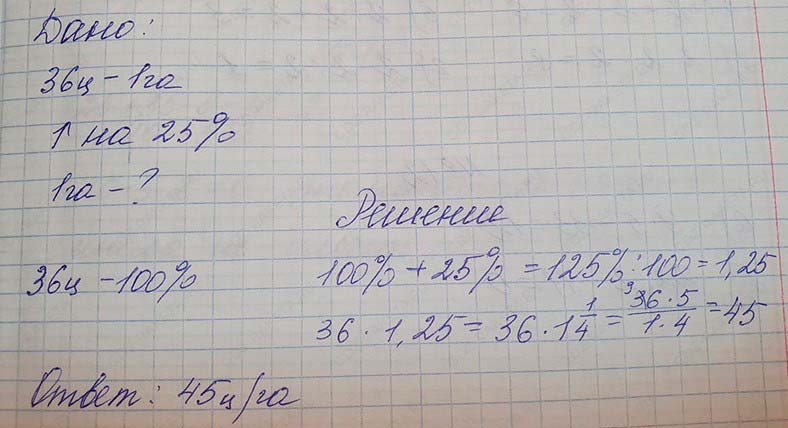 Дано:
36ц - 1га
↑ на 25%
1га - ?
Решение
36ц - 100%
100% + 25% = 125% : 100 = 1,25
36 · 1,25 = 36 · 1 1/4 = 9 36 · 5 / 1 · 4 = 45
Ответ: 45ц/га